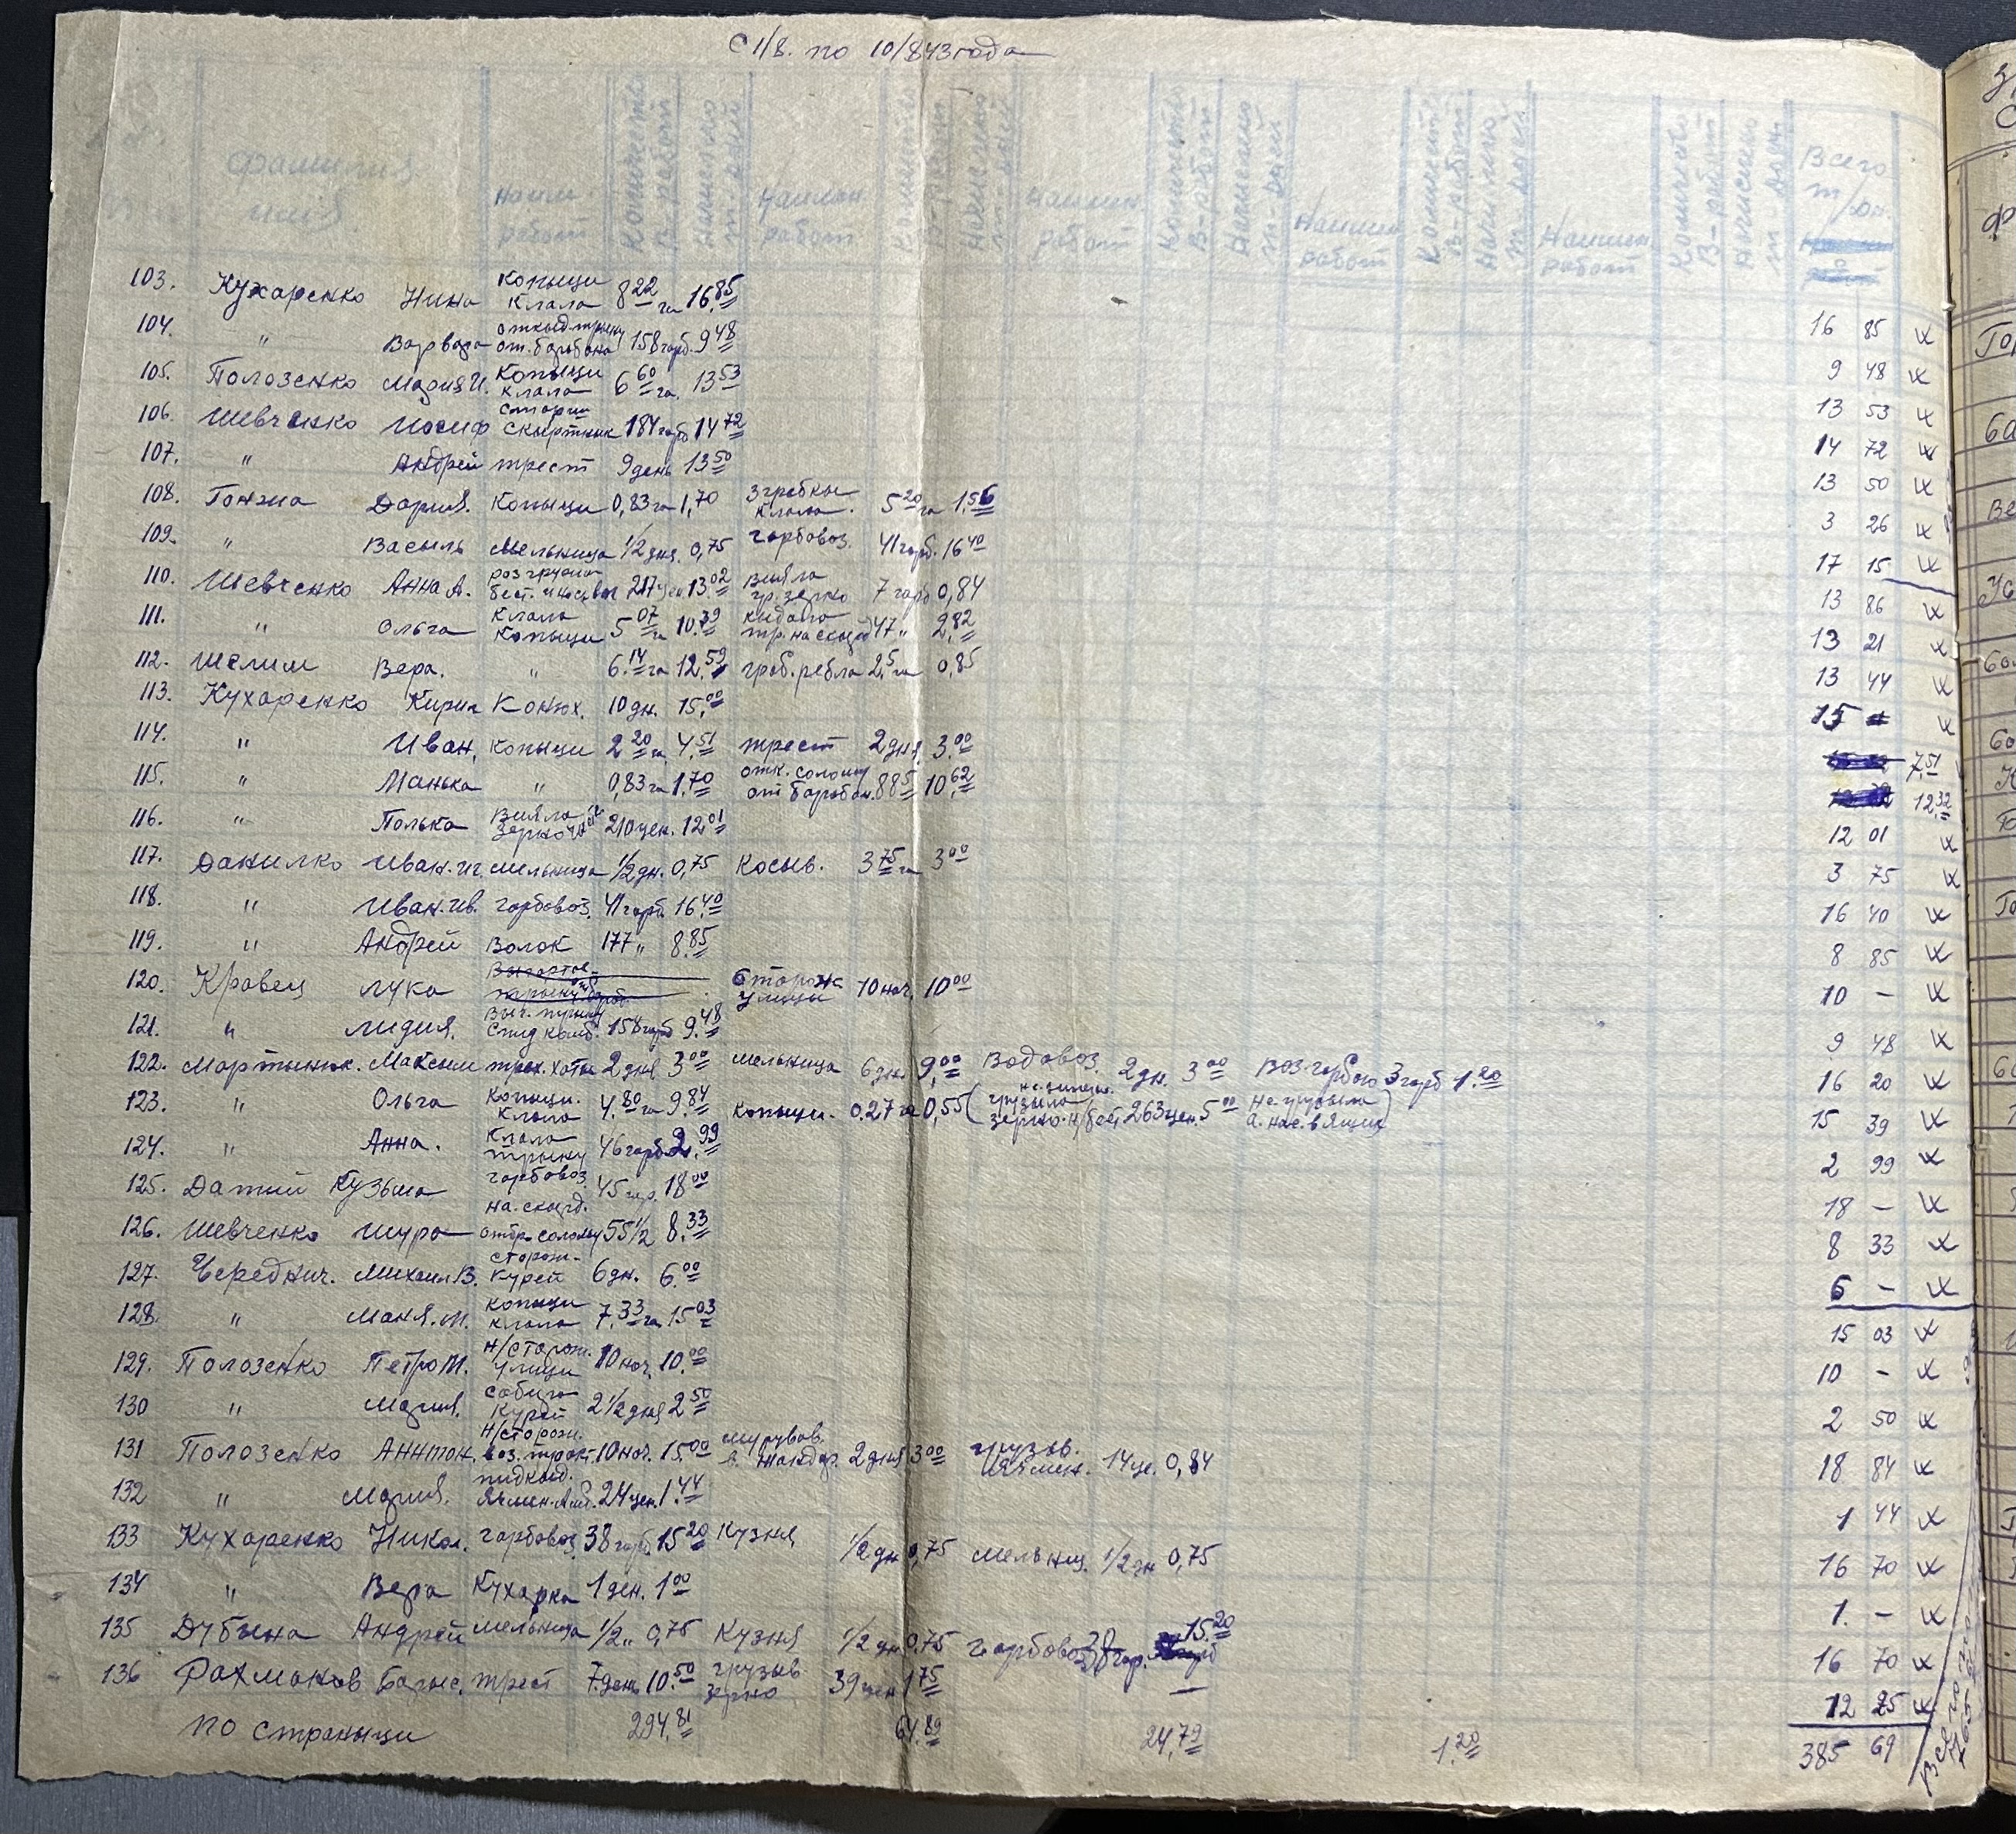 С 1/8. по 10/8 43 года
фамилия имя
Наим. работ
Количеств. в-работ
Начислено т-дней
Наимен. работ
Наимен. работ
Наимен. работ
Наимен. работ
Количество в-работ
Начислено т-дней
Всего т/дн.
103. Кухаренко Нина копыци клала 8 22 га 16,85 16 85
104. " Варвара от. барабана 158 гарб. 9 48 9 48
105. Полозенко Мария И. Копыци клала 6 60 га. 13 53 13 53
106. Шевченко Иосиф старш скыртник 184 гарб 14 72 14 72
107. " Андрей трест 9 день 13 50 13 50
108. Гонжа Дария. Копыци 0,83 га 1,70 згребкы клала. 5 20 га 1,56 3 26
109. " Василь мельница 1/2 дня. 0,75 гарбовоз. 41 гарб. 16 40 17 15
110. Шевченко Анна А. 217 цен 13,02 вияла гр. зерно 7 гарб 0,84 13 86
111. " Ольга клала копыци 5 07 га 10,39 кыдала тр. на скырд 47 " 2,82 13 21
112. Шелим Вера. " 6,14 га 12,59 граб. гребла 2,5 га 0,85 13 44
113. Кухаренко Кирил Конюх. 10 дн. 15,00 15 -
114. " Иван, копыци 2 20 га 4,51 трест 2 дня. 3,00 7,51
115. " Манька " 0,83 га 1,70 отк. солому от барабан. 885 10,62 12,32
116. " Полька вияла зерно 210 цен. 12 01 12 01
117. Данилко Иван. Иг. мельница 1/2 дн. 0,75 Косыв. 3 75 га 3 00 3 75
118. " Иван. Ив. гарбовоз. 41 гарб. 16,40 16 40
119. " Андрей Волок 177 " 8,85 8 85
120. Кравец Лука Сторож улицы 10 ноч. 10 00 10 -
121. " Лидия. 158 гарб 9,48 9 48
122. Мартынюк. Максим трех. хаты 2 дня 3 00 мельница 6 дн. 9,00 Водовоз. 2 дн. 3 00 воз. гарбою 3 гарб 1,20 16 20
123. " Ольга Копыци. клала 4,80 га 9,84 копыци. 0,27 га 0,55 (грузыла зерно. 263 цен. 5 00 не грузыла а. нас. в ящик) 15 39
124. " Анна. клала трыну 46 гарб 2,99 2 99
125. Датий Кузьма гарбовоз. на. скырд. 45 гар. 18 00 18 -
126. Шевченко Шура отбр. солому 55 1/2 8,33 8 33
127. Чередн..ч. Михаил В. сторож. курей 6 дн. 6,00 6 -
128. " Маня. М. копыци клала 7,33 га 15 03 15 03
129. Полозенко Петро М. Н/сторож. улици 10 ноч. 10,00 10 -
130 " Мария. курей 2 1/2 дня 2 50 2 50
131 Полозенко Аннтон. Н/сторож. 10 ноч. 15,00 мурував. в. жандар. 2 дня 3 00 грузыв. ячмен. 14 це. 0,84 18 84
132 " Мария. пидкыд. ячмен. 24 цен. 1,44 1 44
133 Кухаренко Никол. гарбовоз. 38 гарб. 15 20 Кузня 1/2 дн 0,75 мельниц. 1/2 дн 0,75 16 70
134 " Вера Кухарка 1 ден. 1 00 1. -
135 Дубына Андрей мельница 1/2 " 0,75 Кузня 1/2 дн 0,75 гарбовоз 38 гар. 15,20 16 70
136 Рахманов Барыс. трест 7 день 10,50 грузыв зерно 39 цен 1 75 12 25
по страныци 294,81 64,89 24,79 1,20 385 69